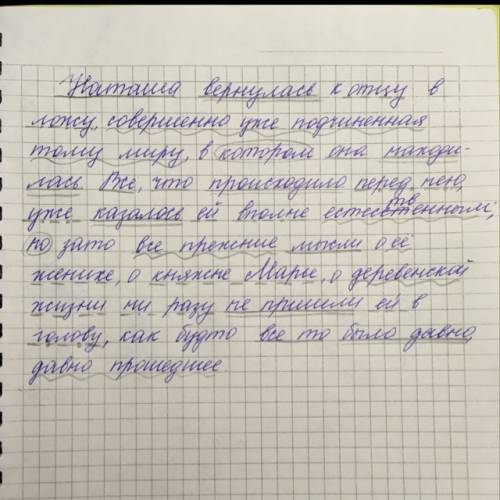 Наташа вернулась к отцу в
ложу, совершенно уже подчиненная
тому миру, в котором она находи-
лась. Все, что происходило перед нею,
уже казалось ей вполне естественным;
но зато все прежние мысли о её
женихе, о княжне Марье, о деревенской
жизни ни разу не пришли ей в
голову, как будто все то было давно,
давно прошедшее